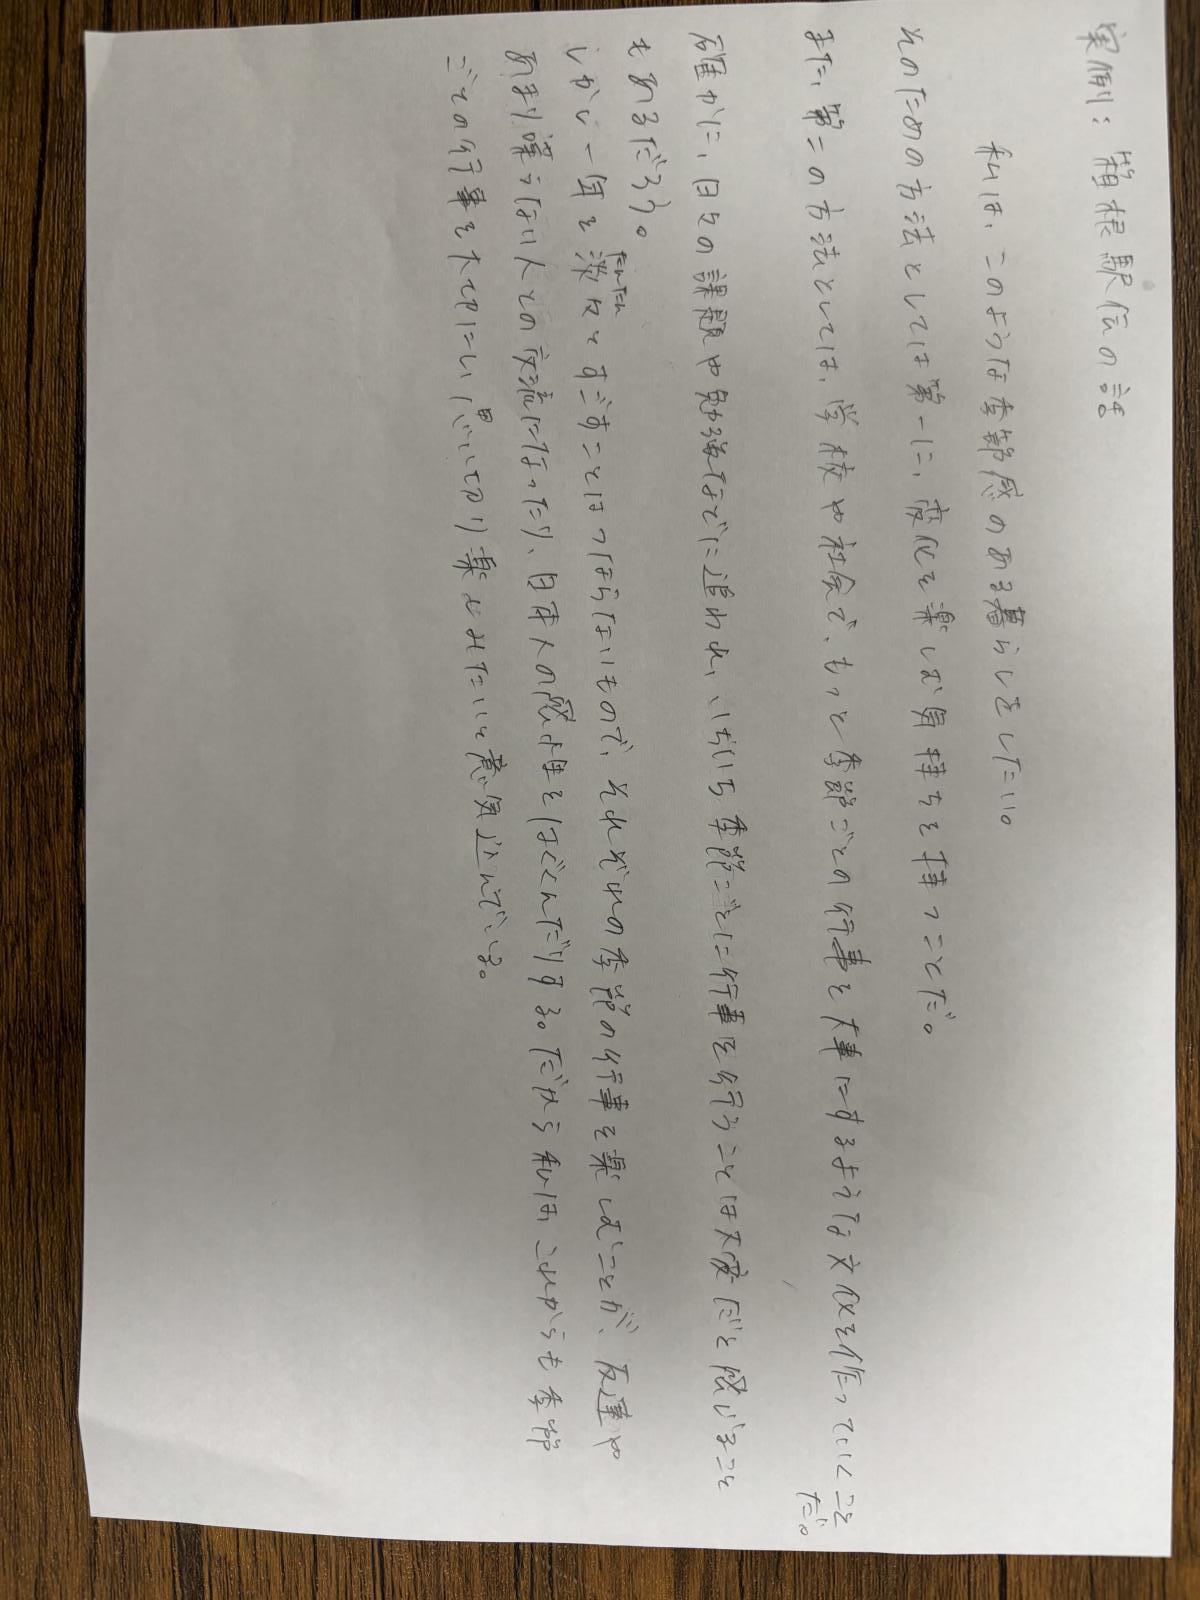 実例：箱根駅伝の話
私は、このような季節感のある暮らしをしたい。
そのための方法としては第一に、変化を楽しむ気持ちを持つことだ。
また、第二の方法としては、学校や社会で、もっと季節ごとの行事を大事にするような文化を作っていくこと
だ。
確かに、日々の課題や勉強などに追われ、いちいち季節ごとに行事を行うことは大変だと感じること
もあるだろう。
たんたん
しかし一年を淡々とすごすことはつまらないもので、それぞれの季節の行事を楽しむことが、友達や
あまり喋らない人との交流になったり、日本人の感性をはぐくんだりする。だから私は、これからも季節
ごとの行事を大切にし、思いっきり楽しみたいと意気込んでいる。